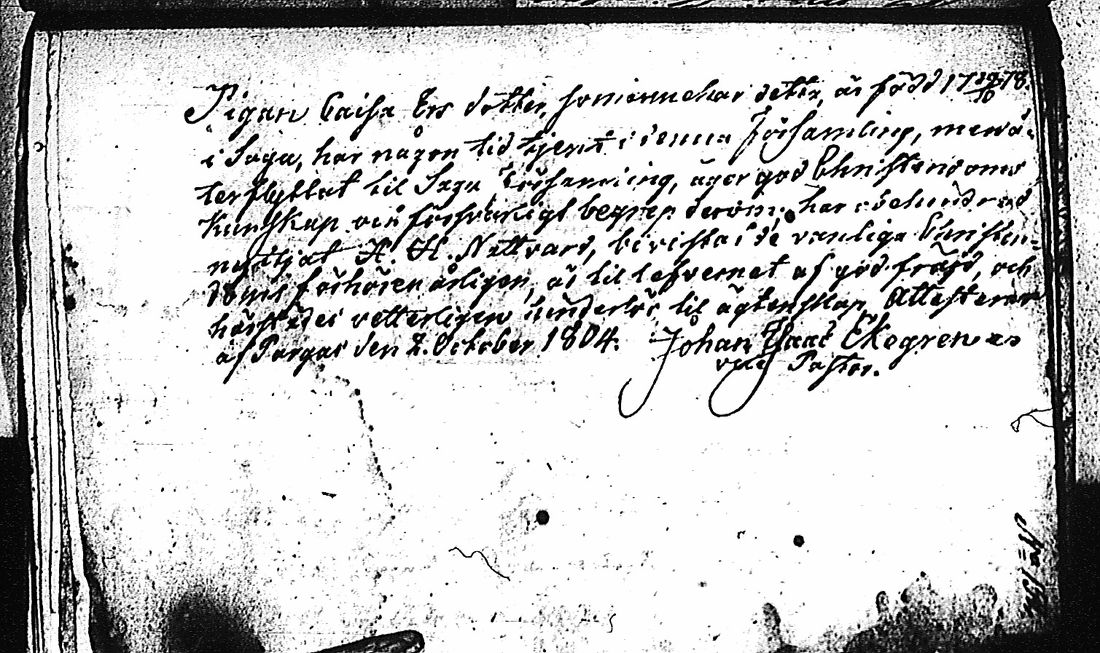 Pigan Caisa Ers dotter, som innehar detta, är född 17 29/10 78.
i Sagu, har någon tid tjent i denna Församling, men å-
terflyttat til Sagu Församling, äger god Christendoms
kunskap och försvarligt begrep derom; har obehindrad
nyttjat H. H. Nattvard, bevistat de vanliga Christen-
doms förhören årligen, är til lefvernet af god fräjd, och
härstädes vetterligen hinderlös til ägtenskap. Attesterar
af Pargas den 2. October 1804. Johan Isaac Ekegren
vice Pastor.